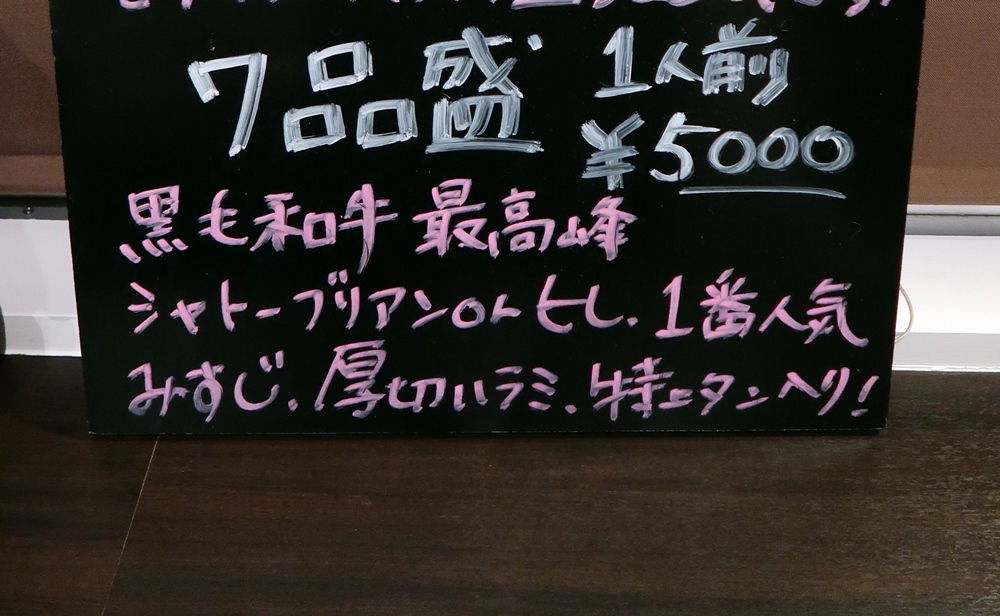 7品盛 1人前
¥5000
黒毛和牛 最高峰
シャトーブリアンorヒレ、1番人気
みすじ、厚切ハラミ、特上タン入り!